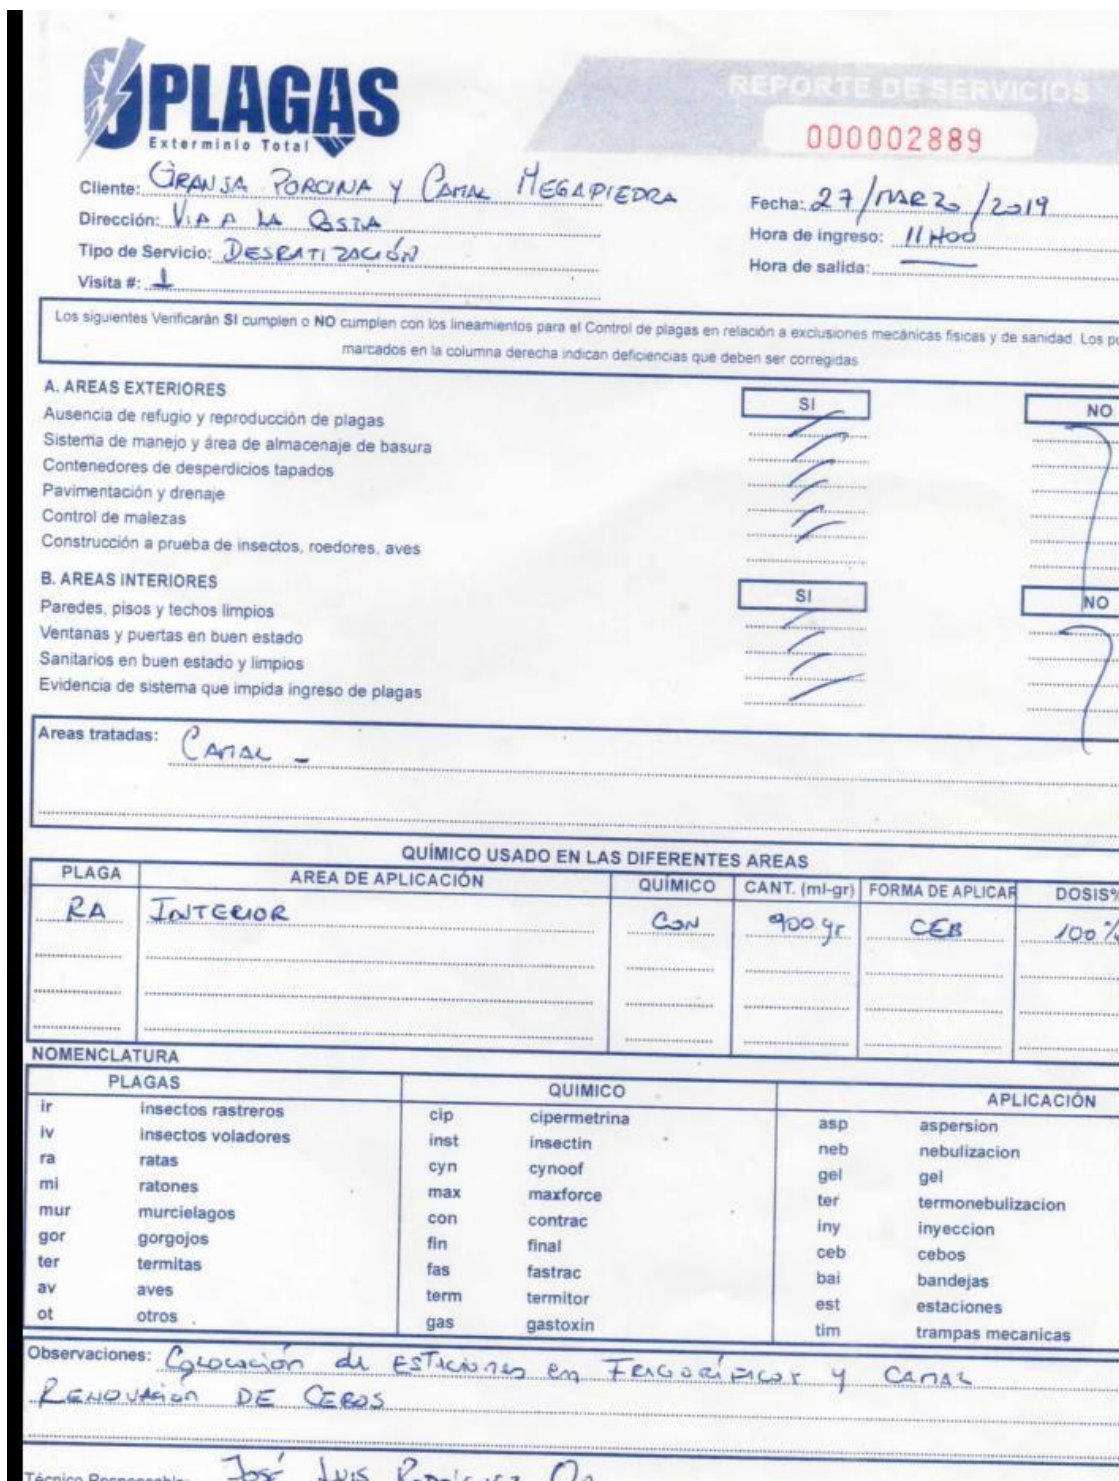 PLAGAS
Exterminio Total
REPORTE DE SERVICIOS
000002889
Cliente: GRANJA PORCINA Y CAMAL MEGAPIEDRA
Fecha: 27/MARZO/2019
Dirección: VIA A LA COSTA
Hora de ingreso: 11H00
Tipo de Servicio: DESRATIZACIÓN
Hora de salida:
Visita #: 1
Los siguientes Verificarán SI cumplen o NO cumplen con los lineamientos para el Control de plagas en relación a exclusiones mecánicas físicas y de sanidad. Los pu
marcados en la columna derecha indican deficiencias que deben ser corregidas
A. AREAS EXTERIORES SI NO
Ausencia de refugio y reproducción de plagas
Sistema de manejo y área de almacenaje de basura
Contenedores de desperdicios tapados
Pavimentación y drenaje
Control de malezas
Construcción a prueba de insectos, roedores, aves
B. AREAS INTERIORES SI NO
Paredes, pisos y techos limpios
Ventanas y puertas en buen estado
Sanitarios en buen estado y limpios
Evidencia de sistema que impida ingreso de plagas
Areas tratadas: CAMAL -
QUÍMICO USADO EN LAS DIFERENTES AREAS
PLAGA AREA DE APLICACIÓN QUÍMICO CANT. (ml-gr) FORMA DE APLICAR DOSIS%
RA INTERIOR CON 900 gr CEB 100%
NOMENCLATURA
PLAGAS QUIMICO APLICACIÓN
ir insectos rastreros cip cipermetrina asp aspersion
iv insectos voladores inst insectin neb nebulizacion
ra ratas cyn cynoof gel gel
mi ratones max maxforce ter termonebulizacion
mur murcielagos con contrac iny inyeccion
gor gorgojos fin final ceb cebos
ter termitas fas fastrac bai bandejas
av aves term termitor est estaciones
ot otros gas gastoxin tim trampas mecanicas
Observaciones: Colocación de ESTACIONES en FRIGORÍFICOS y CAMAL
RENOVACIÓN DE CEBOS
Técnico Responsable: JOSÉ LUIS RODRÍGUEZ